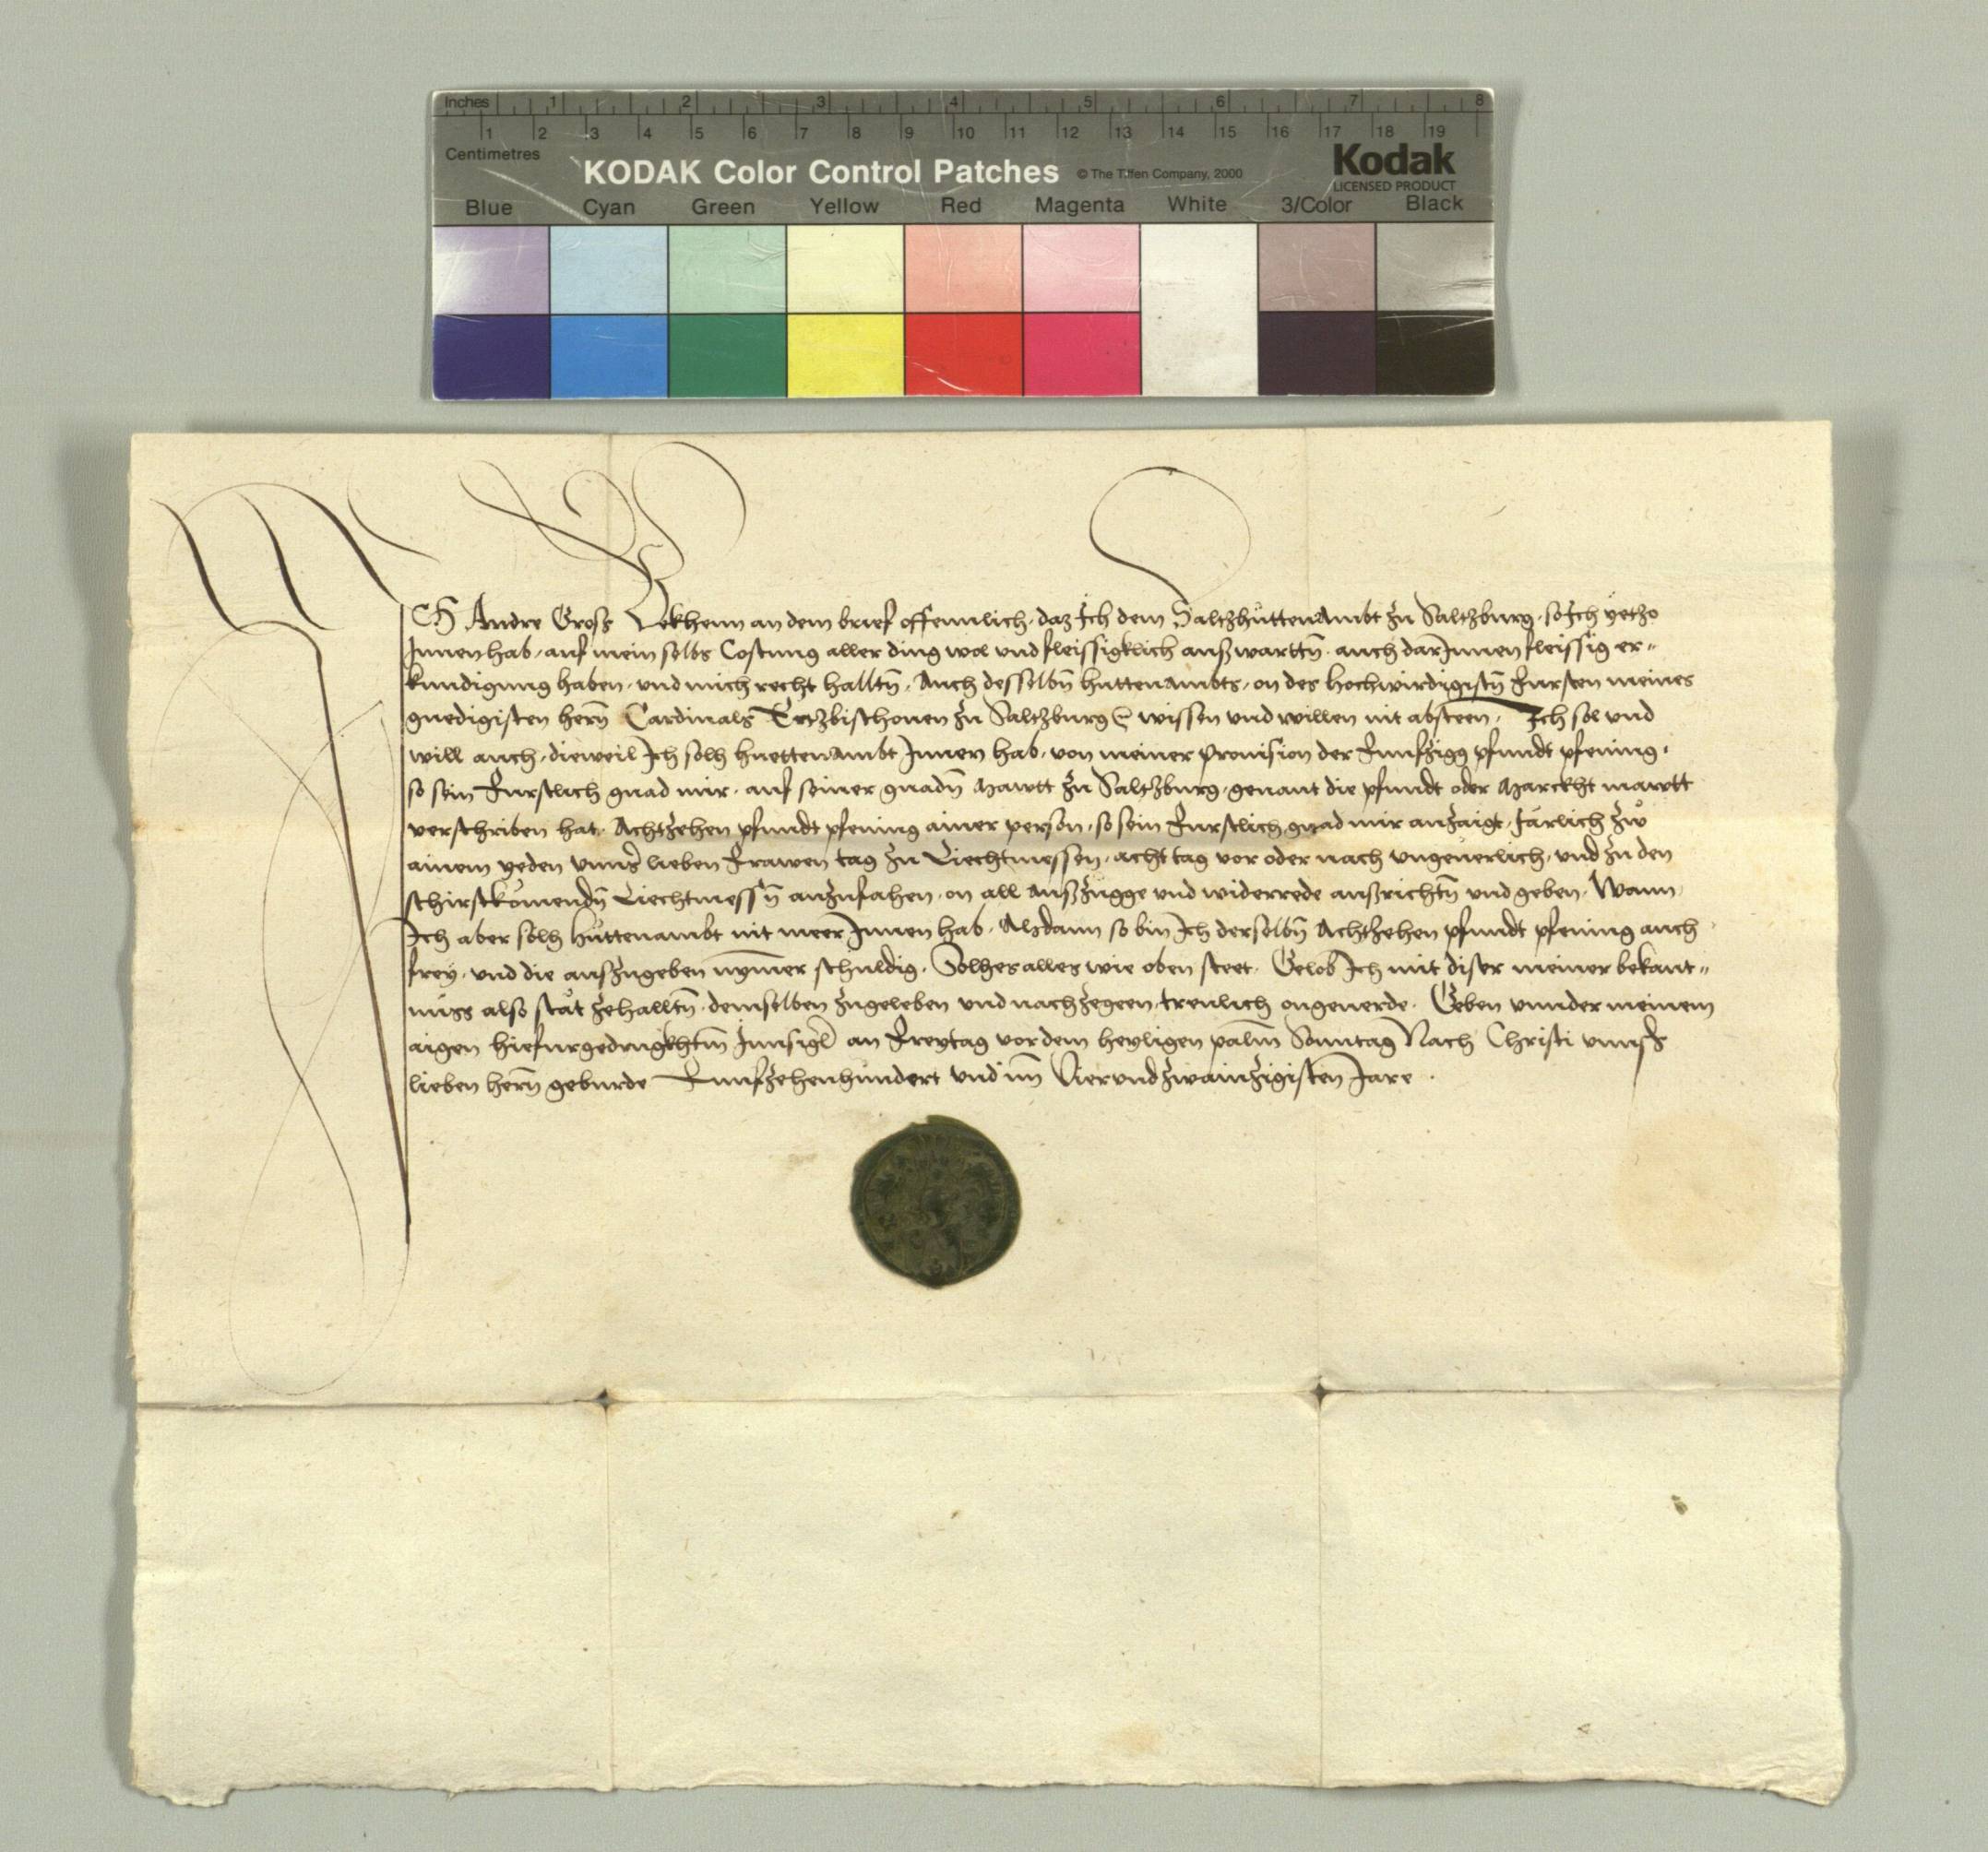 Inches 1 2 3 4 5 6 7 8
1 2 3 4 5 6 7 8 9 10 11 12 13 14 15 16 17 18 19
Centimetres
KODAK Color Control Patches © The Tiffen Company, 2000 Kodak
LICENSED PRODUCT
Blue Cyan Green Yellow Red Magenta White 3/Color Black
ICH Andre Gross Bekhenn an dem brief offennlich, daz Ich dem SaltzhüttenAmbt zu Saltzburg, so Ich yetzo
Innen hab, auf mein selbs Costung aller ding wol vnd fleissigklich auszwarttn̄. auch darInnen fleissig er„
kundigung haben, vnd mich recht halltn̄, Auch desselbn̄ huttenambts, on des hochwirdigistn̄ Fursten meines
gnedigisten hern̄ Cardinals Ertzbischouen zu Saltzburg wissen vnd willen nit absteen, Ich sol vnd
will auch, dieweil Ich solh huettenambt Innen hab, von meiner prouision der Funfzigg pfundt pfening,
so sein Furstlich gnad mir, auf seiner gnadn̄ Mawtt zu Saltzburg, genant die pfundt oder Marckht mawtt
verschriben hat, Achtzehen pfundt pfening ainer person, so sein Furstlich gnad mir anzaigt, Järlich zů
ainem yeden vnnser lieben Frawen tag zu Liechtmessen, acht tag vor oder nach vngeuerlich, vnd zu den
schirstkomendn̄ Liechtmessn̄ anzufahen, on all auszzugge vnd widerrede auszrichtn̄ vnd geben, Wann
Ich aber solh huttenambt nit meer Innen hab, Alsdann so bin Ich derselbn̄ Achtzehen pfundt pfening auch
frey, vnd die auszzugeben nym̄er schuldig, Solhes alles wie oben steet, Gelob Ich mit diser meiner bekant„
nuss also stät zehalltn̄, demselben zugeleben vnd nachzegeen, treulich ongeuerde, Geben vnnder meinem
aigen hiefurgedrugkhtm̄ Innsigl an Freytag vor dem heyligen palm̄ Sonntag Nach Christi vnnsers
lieben hern̄ geburde Funfzehenhundert vnd im̄ Viervndzwainzigisten Jare .